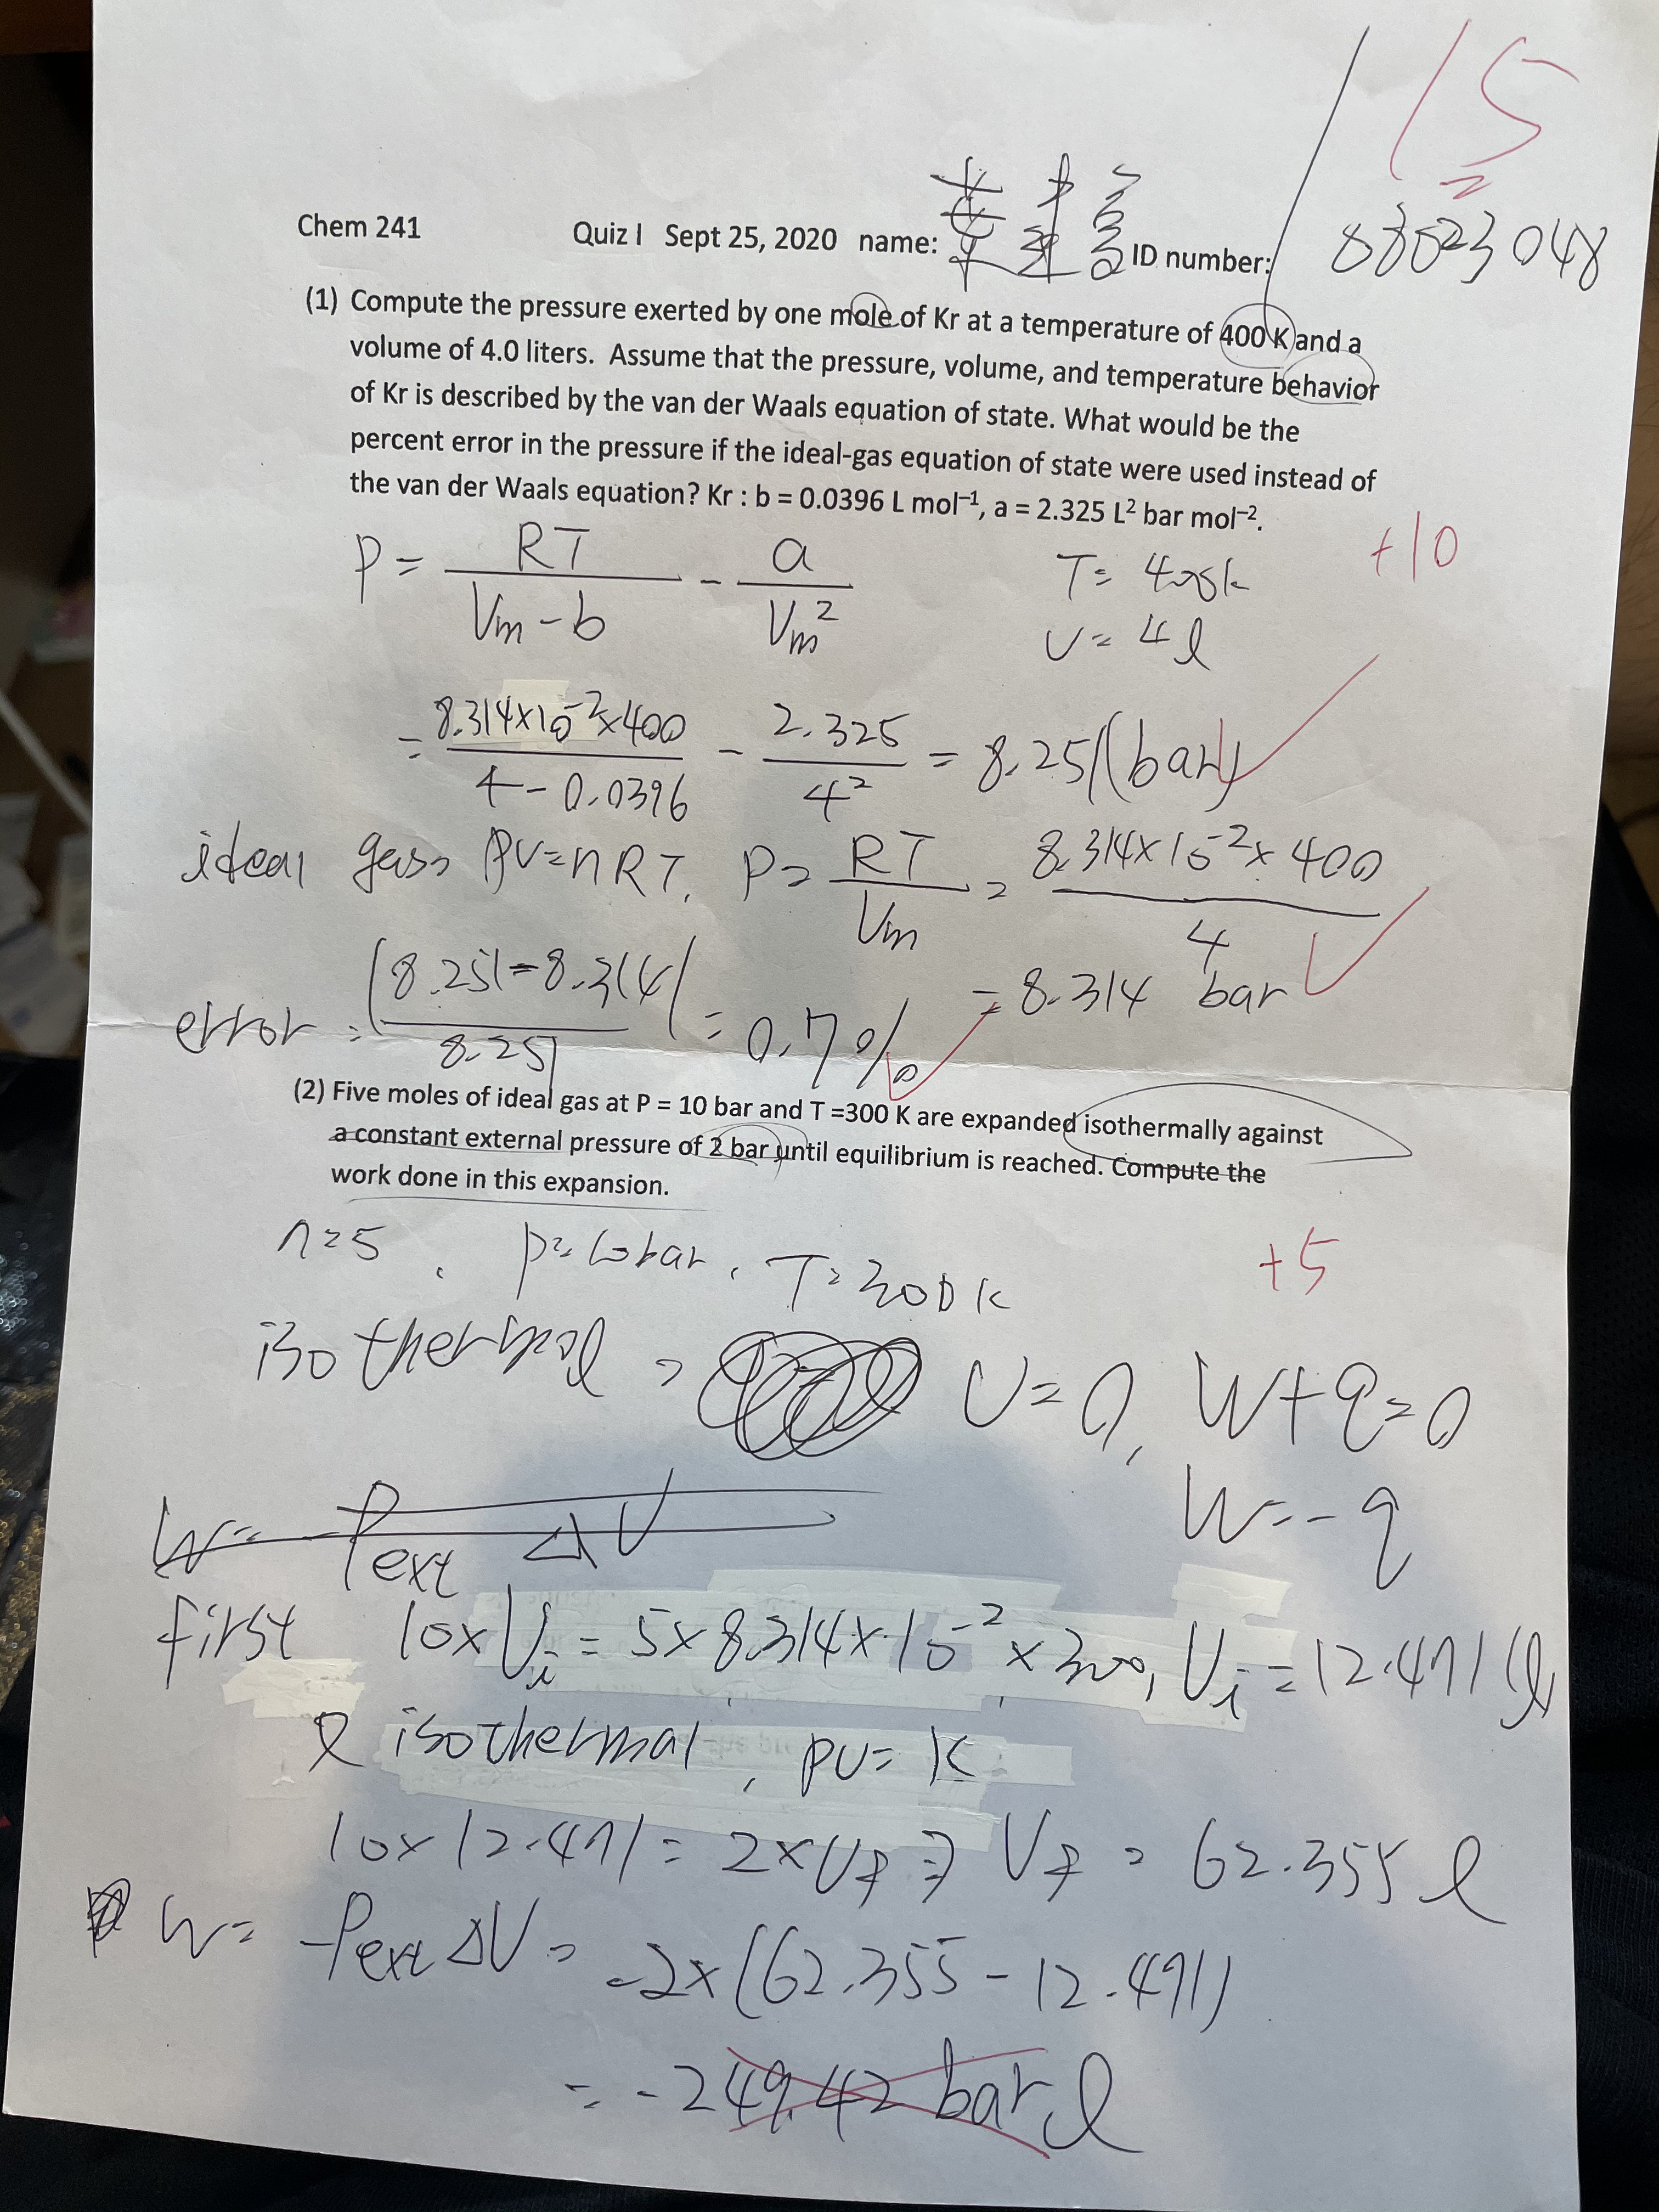 15
Chem 241 Quiz I Sept 25, 2020 name: ID number: 88023048
(1) Compute the pressure exerted by one mole of Kr at a temperature of 400 K and a
volume of 4.0 liters. Assume that the pressure, volume, and temperature behavior
of Kr is described by the van der Waals equation of state. What would be the
percent error in the pressure if the ideal-gas equation of state were used instead of
the van der Waals equation? Kr : b = 0.0396 L mol⁻¹, a = 2.325 L² bar mol⁻².
P = RT / (Vm - b) - a / Vm²
T = 400k
+10
V = 4 l
= 8.314×10⁻²×400 / (4 - 0.0396) - 2.325 / 4² = 8.251 (bar)
ideal gas, PV=nRT. P = RT / Vm = 8.314×10⁻²×400 / 4
= 8.314 bar
error = |8.251-8.314| / 8.251 = 0.7%
(2) Five moles of ideal gas at P = 10 bar and T =300 K are expanded isothermally against
a constant external pressure of 2 bar until equilibrium is reached. Compute the
work done in this expansion.
n=5, P=10bar, T=300K
+5
isothermal = U=0, W+q=0
W=-q
W= -Pext ΔV
first 10×Vi = 5×8.314×10⁻²×300, Vi = 12.471 (l)
isothermal, PV=K
10×12.471 = 2×Vf ⇒ Vf = 62.355 l
W= -Pext ΔV = -2×(62.355-12.471)
= -249.42 bar l